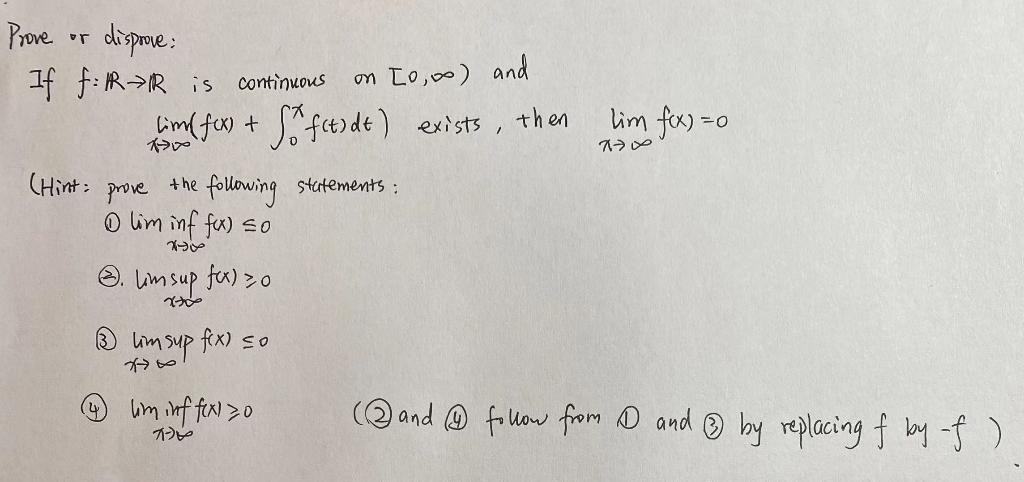 Prove or disprove:
If f: ℝ→ℝ is continuous on [0,∞) and
lim_{x→∞} (f(x) + ∫_0^x f(t)dt) exists, then lim_{x→∞} f(x) = 0
(Hint: prove the following statements:
① lim inf_{x→∞} f(x) ≤ 0
②. limsup_{x→∞} f(x) ≥ 0
③ limsup_{x→∞} f(x) ≤ 0
④ lim inf_{x→∞} f(x) ≥ 0 (② and ④ follow from ① and ③ by replacing f by -f ).